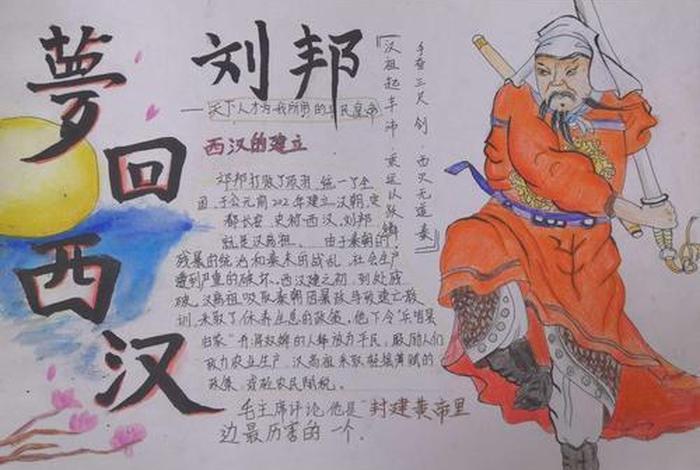 夢回西汉
刘邦
——天下人才为我所用的平民皇帝
『汉祖起丰沛 乘运以跃鳞
手奋三尺剑 西灭无道秦』
西汉的建立
邓邦打败了项羽,统一了全
国,于公元前202年建立汉朝,定
都长安,史称西汉,刘邦
就是汉高祖。由于秦朝的
残暴的统治和秦末的战乱,社会生产
遭到严重的破坏。西汉建之初,到处残
破,汉高祖吸取秦朝因暴政导致速亡教
训,采取了休养生息的政策,他下令“兵皆罢
归家”,并将奴婢的人释放为平民,鼓励人们
致力农业生产,汉高祖采取轻徭薄赋的
政策,减轻农民赋税。
毛主席评论,他是“封建黄帝里
边最厉害的一个.